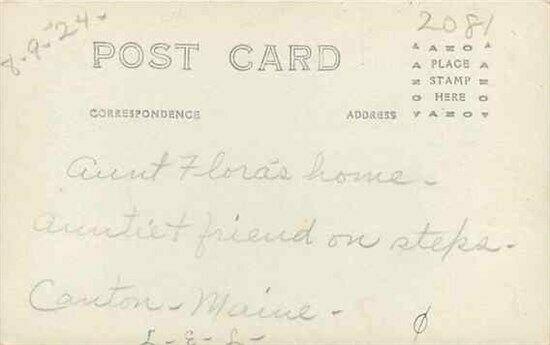 8-9-'24-
2081
POST CARD
AZO
PLACE
STAMP
HERE
AZO
CORRESPONDENCE
ADDRESS
Aunt Flora's home-
Auntie + friend on steps-
Canton-Maine-
L-E-L-